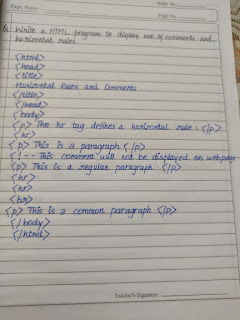 Page No.
Page No.
Q. Write a HTML program to display use of comments and
horizontal rules
<html>
<head>
<title>
Horizontal Rules and Comments
</title>
</head>
<body>
<p> The hr tag defines a horizontal rule: </p>
<hr>
<p> This is a paragraph </p>
<!-- This comment will not be displayed on web page
<p> This is a regular paragraph </p>
<hr>
<hr>
<hr>
<p> This is a common paragraph </p>
</body>
</html>
Teacher's Signature :